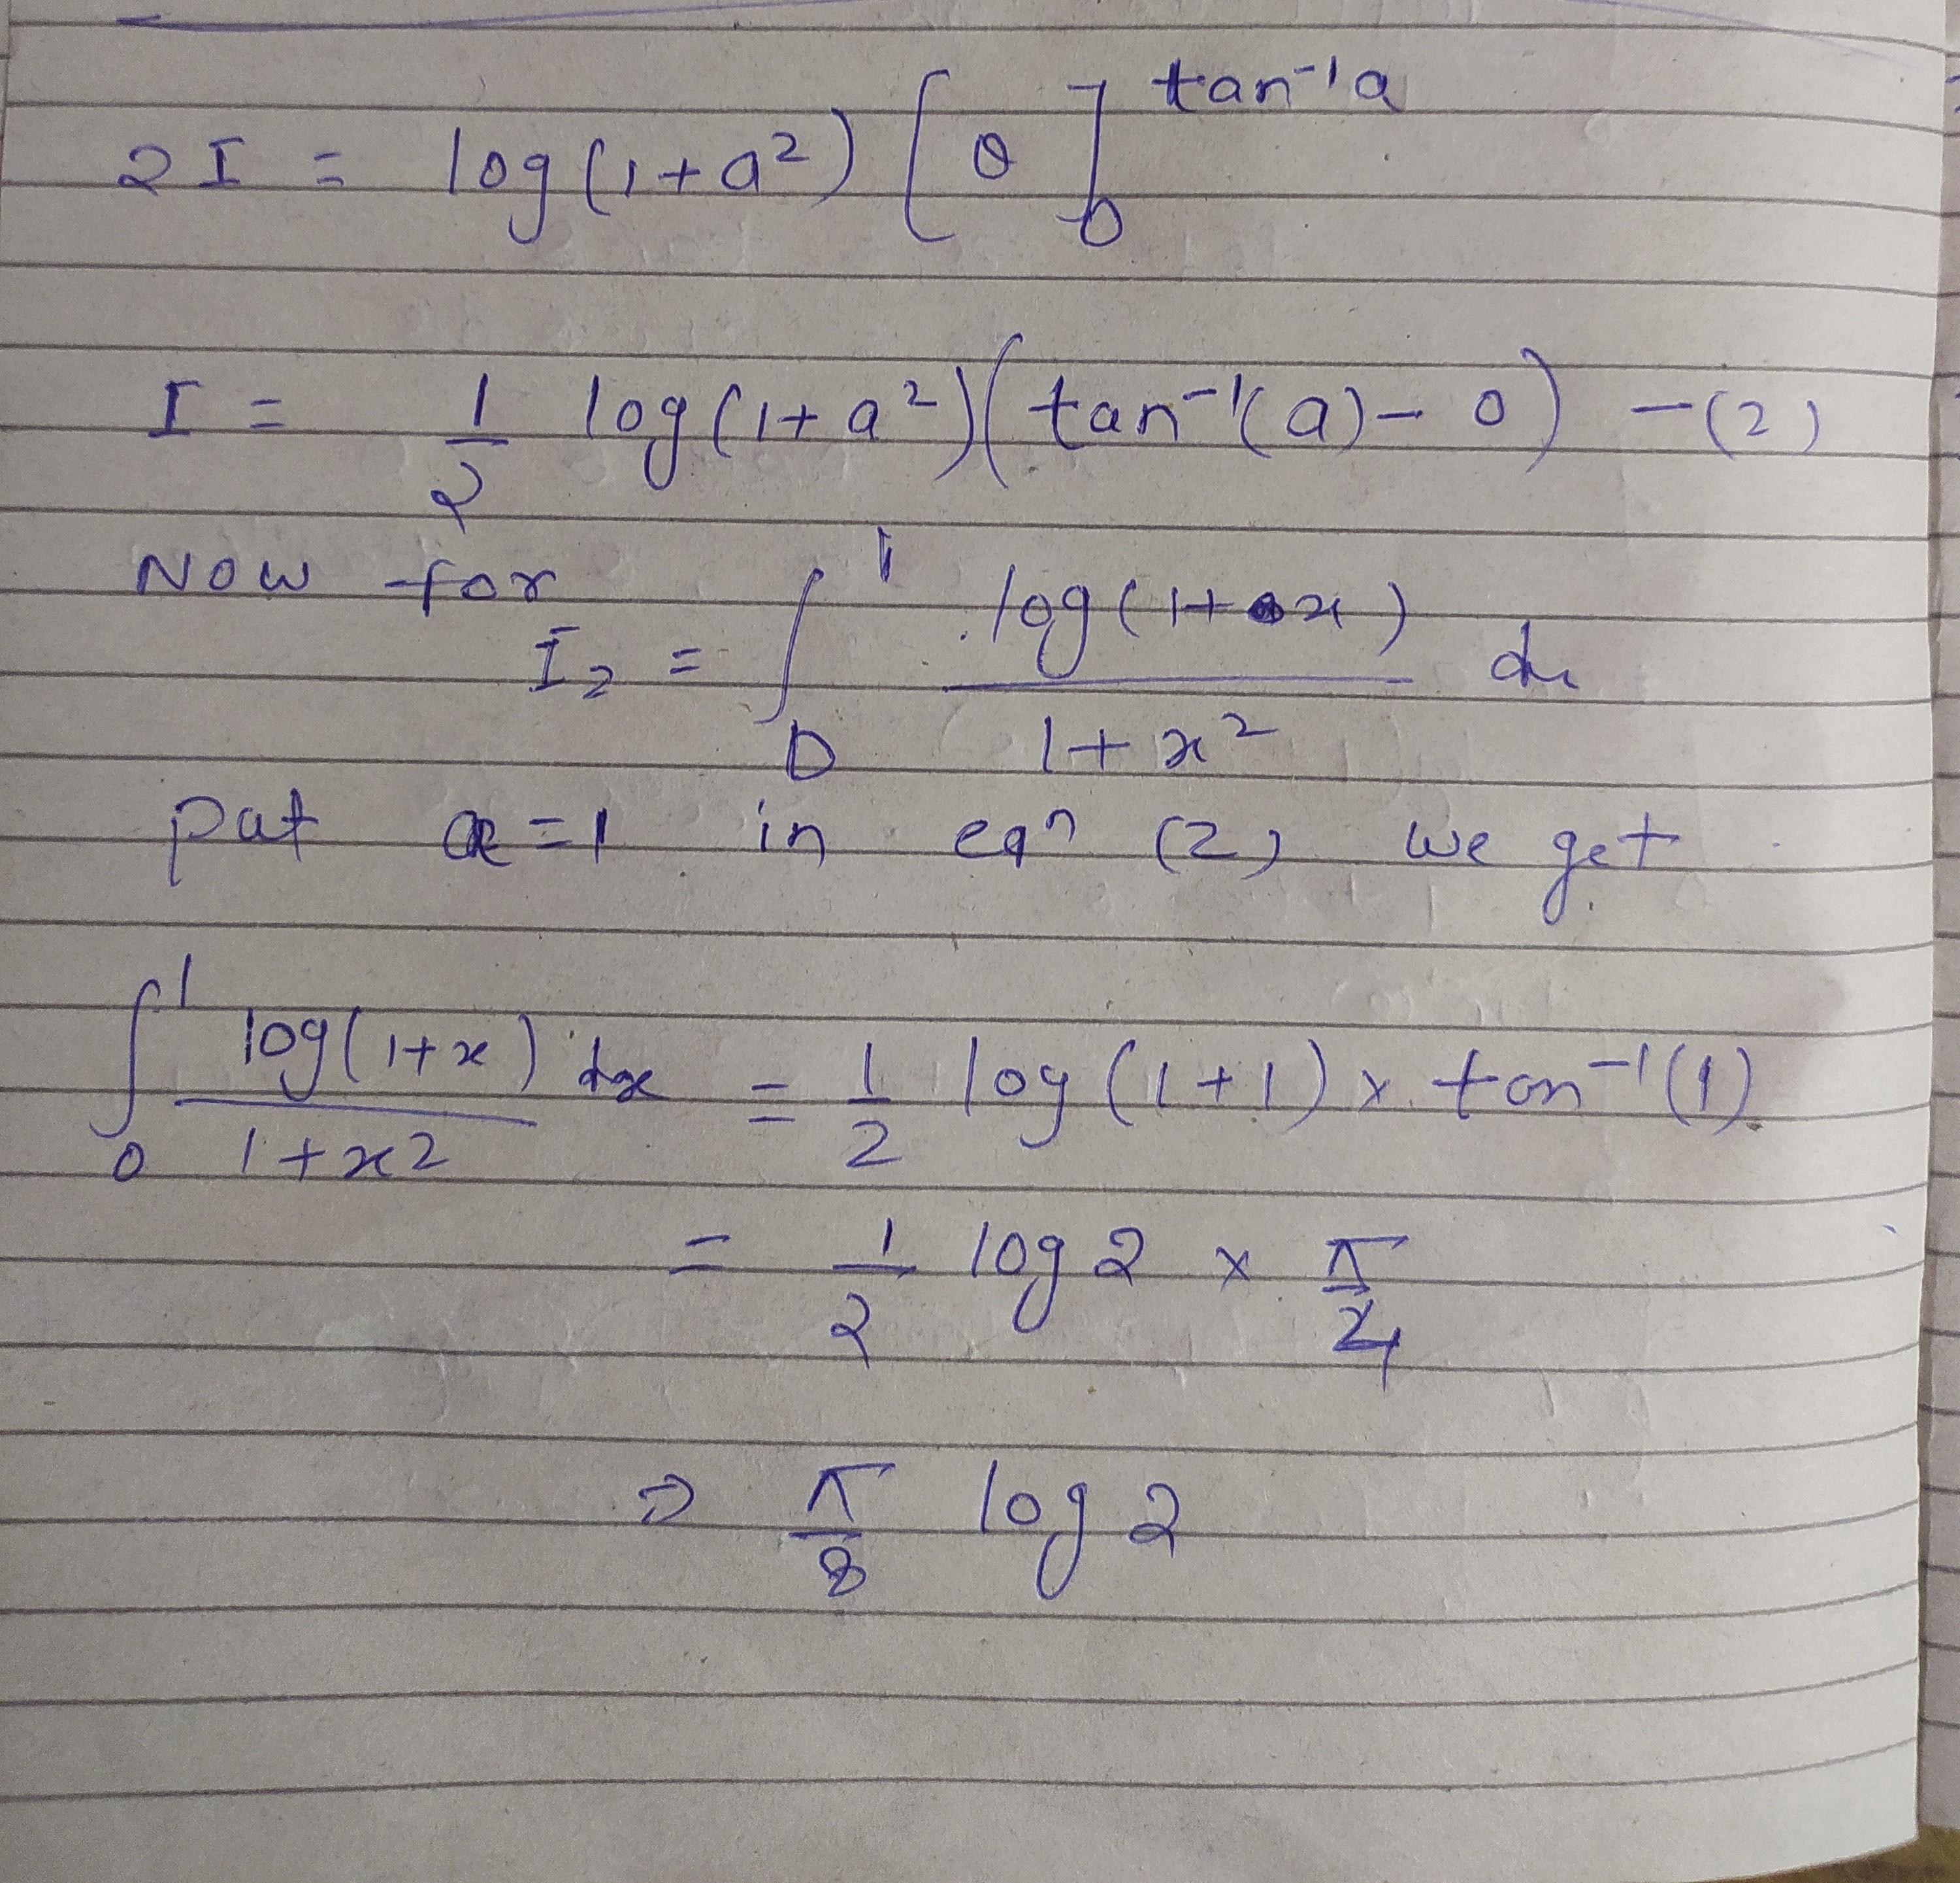 2I = log(1+a²) [θ]₀^tan⁻¹a
I = 1/2 log(1+a²)(tan⁻¹(a) - 0) -(2)
Now for
I₂ = ∫₀¹ log(1+x)/1+x² dx
put a=1 in eqn (2) we get
∫₀¹ log(1+x)/1+x2 dx = 1/2 log(1+1) x tan⁻¹(1)
= 1/2 log 2 x π/4
⇒ π/8 log 2